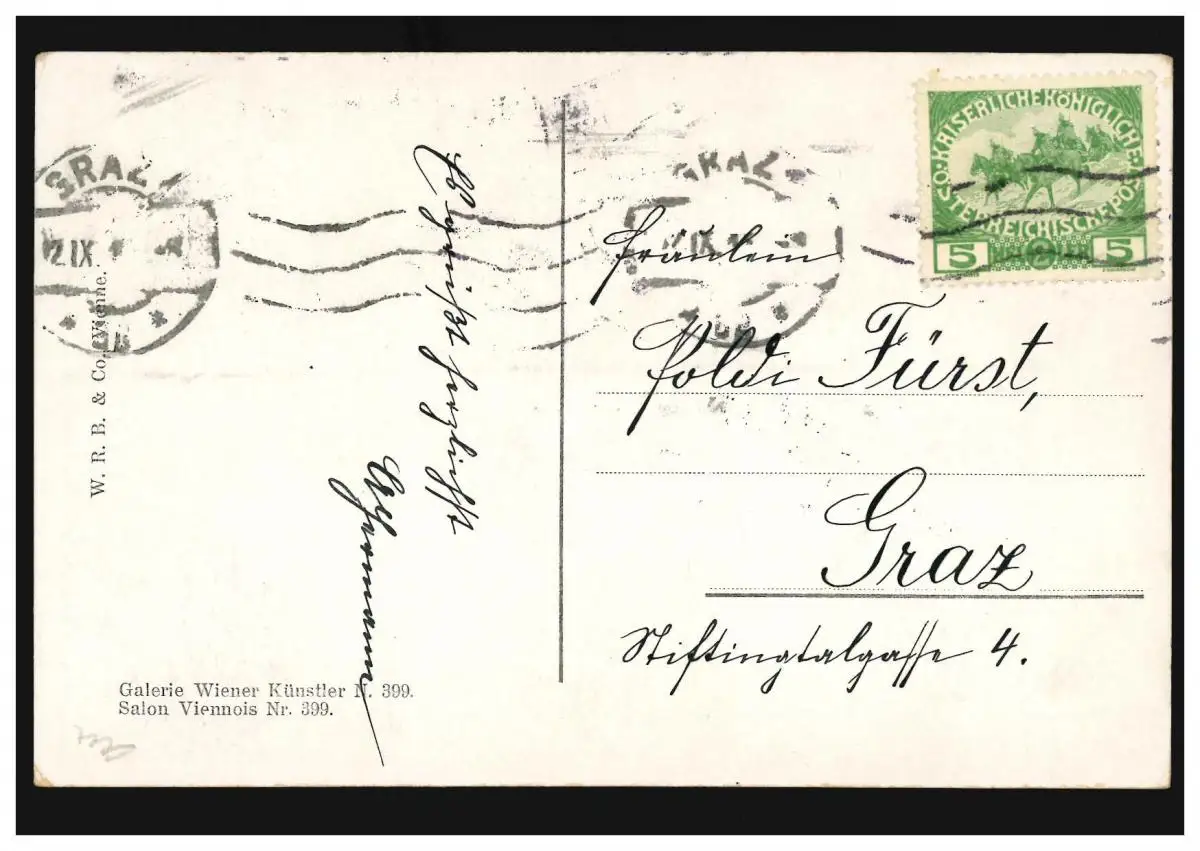 GRAZ
12 IX
W. R. B. & Co., Vienne.
grüßt herzlichst
Hermann
Galerie Wiener Künstler N. 399.
Salon Viennois Nr. 399.
GRAZ
12 IX
KAISERLICHE KÖNIGLICHE
ÖSTERREICHISCHE POST
5 5
Fräulein
Poldi Fürst,
Graz
Stiftingtalgasse 4.